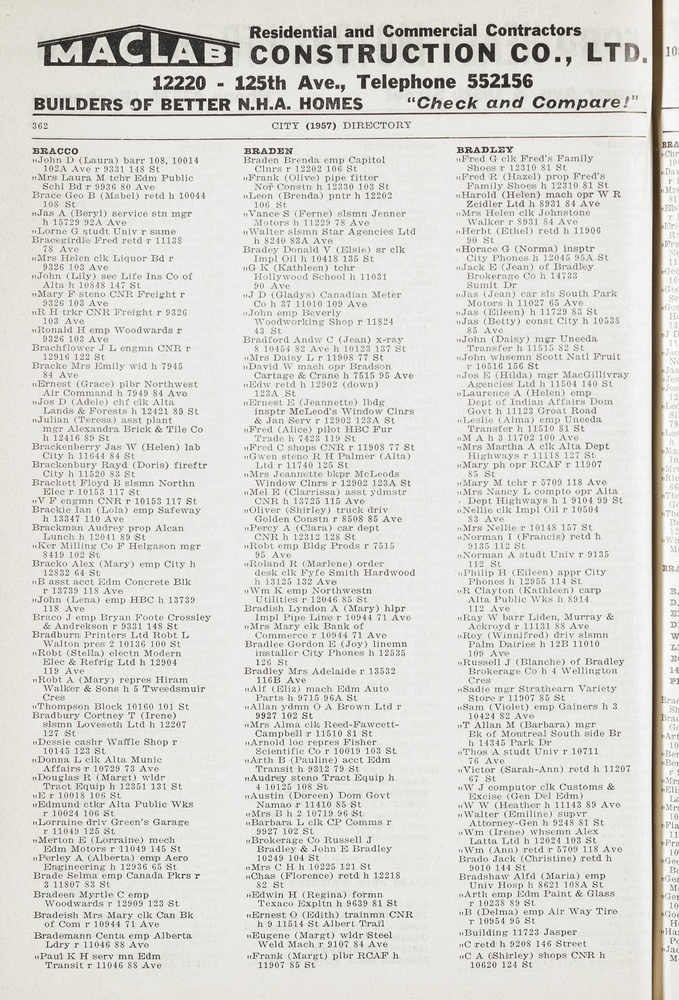 MACLAB
Residential and Commercial Contractors
CONSTRUCTION CO., LTD.
12220 - 125th Ave., Telephone 552156
BUILDERS OF BETTER N.H.A. HOMES "Check and Compare!"
362 CITY (1957) DIRECTORY
BRACCO
"John D (Laura) barr 108, 10014
102A Ave r 9331 148 St
"Mrs Laura M tchr Edm Public
Schl Bd r 9936 80 Ave
Brace Geo B (Mabel) retd h 10044
108 St
"Jas A (Beryl) service stn mgr
h 15729 92A Ave
"Lorne G studt Univ r same
Bracegirdle Fred retd r 11138
78 Ave
"Mrs Helen clk Liquor Bd r
9326 103 Ave
"John (Lily) sec Life Ins Co of
Alta h 10848 147 St
"Mary F steno CNR Freight r
9326 103 Ave
"R H trkr CNR Freight r 9326
103 Ave
"Ronald H emp Woodwards r
9326 103 Ave
Brachflower J L engmn CNR r
12916 122 St
Bracke Mrs Emily wid h 7945
84 Ave
"Ernest (Grace) plbr Northwest
Air Command h 7949 84 Ave
"Jos D (Adele) chf clk Alta
Lands & Forests h 12421 89 St
"Julian (Teresa) asst plant
mgr Alexandra Brick & Tile Co
h 12416 89 St
Brackenberry Jas W (Helen) lab
City h 11644 84 St
Brackenbury Rayd (Doris) fireftr
City h 11520 83 St
Brackett Floyd B slsmn Northn
Elec r 10153 117 St
"V F engmn CNR r 10153 117 St
Brackie Ian (Lola) emp Safeway
h 13347 110 Ave
Brackman Audrey prop Alcan
Lunch h 12041 89 St
"Ker Milling Co F Helgason mgr
8419 102 St
Bracko Alex (Mary) emp City h
12832 64 St
"B asst acct Edm Concrete Blk
r 13739 118 Ave
"John (Lena) emp HBC h 13739
118 Ave
Braco J emp Bryan Foote Crossley
& Andrekson r 9331 148 St
Bradburn Printers Ltd Robt L
Walton pres 2 10136 100 St
"Robt (Stella) electn Modern
Elec & Refrig Ltd h 12904
119 Ave
"Robt A (Mary) repres Hiram
Walker & Sons h 5 Tweedsmuir
Cres
"Thompson Block 10160 101 St
Bradbury Cortney T (Irene)
slsmn Loveseth Ltd h 12207
127 St
"Dessie cashr Waffle Shop r
10145 123 St
"Donna L clk Alta Munic
Affairs r 10729 73 Ave
"Douglas R (Margt) wldr
Tract Equip h 12351 131 St
"E r 10018 106 St
"Edmund ctkr Alta Public Wks
r 10024 106 St
"Lorraine driv Green's Garage
r 11049 125 St
"Merton E (Lorraine) mech
Edm Motors r 11049 145 St
"Perley A (Alberta) emp Aero
Engineering h 12936 65 St
Brade Selma emp Canada Pkrs r
3 11807 83 St
Bradeen Myrtle C emp
Woodwards r 12909 123 St
Bradeish Mrs Mary clk Can Bk
of Com r 10944 71 Ave
Brademann Centa emp Alberta
Ldry r 11046 88 Ave
"Paul K H serv mn Edm
Transit r 11046 88 Ave
BRADEN
Braden Brenda emp Capitol
Clnrs r 12202 106 St
"Frank (Olive) pipe fitter
Nor Constn h 12330 103 St
"Leon (Brenda) pntr h 12202
106 St
"Vance S (Ferne) slsmn Jenner
Motors h 11229 78 Ave
"Walter slsmn Star Agencies Ltd
h 8240 83A Ave
Bradey Donald V (Elsie) sr clk
Impl Oil h 10418 135 St
"G K (Kathleen) tchr
Hollywood School h 11031
90 Ave
"J D (Gladys) Canadian Meter
Co h 37 11010 109 Ave
"John emp Beverly
Woodworking Shop r 11824
43 St
Bradford Andw C (Jean) x-ray
8 10454 82 Ave h 10123 137 St
"Mrs Daisy L r 11908 77 St
"David W mach opr Bradson
Cartage & Crane h 7515 95 Ave
"Edw retd h 12902 (down)
123A St
"Ernest E (Jeannette) lbdg
insptr McLeod's Window Clnrs
& Jan Serv r 12902 123A St
"Fred (Alice) pilot HBC Fur
Trade h 7423 119 St
"Fred C shops CNR r 11908 77 St
"Gwen steno R H Palmer (Alta)
Ltd r 11740 125 St
"Mrs Jeannette bkpr McLeods
Window Clnrs r 12902 123A St
"Mel E (Clarrissa) asst ydmstr
CNR h 13725 115 Ave
"Oliver (Shirley) truck driv
Golden Constn r 8508 85 Ave
"Percy A (Clara) car dept
CNR h 12312 128 St
"Robt emp Bldg Prods r 7515
95 Ave
"Roland R (Marlene) order
desk clk Fyfe Smith Hardwood
h 13125 132 Ave
"Wm K emp Northwestn
Utilities r 12046 85 St
Bradish Lyndon A (Mary) hlpr
Impl Pipe Line r 10944 71 Ave
"Mrs Mary clk Bank of
Commerce r 10944 71 Ave
Bradlee Gordon E (Joy) linemn
installer City Phones h 12535
126 St
Bradley Mrs Adelaide r 13532
116B Ave
"Alf (Eliz) mach Edm Auto
Parts h 9715 96A St
"Allan ydmn O A Brown Ltd r
9927 102 St
"Mrs Alma clk Reed-Fawcett-
Campbell r 11510 81 St
"Arnold loc repres Fisher
Scientific Co r 10019 103 St
"Arth B (Pauline) acct Edm
Transit h 9312 79 St
"Audrey steno Tract Equip h
4 10125 108 St
"Austin (Doreen) Dom Govt
Namao r 11410 85 St
"Mrs B h 2 10719 96 St
"Barbara L clk CP Comms r
9927 102 St
"Brokerage Co Russell J
Bradley & John E Bradley
10249 104 St
"Mrs C H h 10225 121 St
"Chas (Florence) retd h 12218
82 St
"Edwin H (Regina) formn
Texaco Expltn h 9639 81 St
"Ernest O (Edith) trainmn CNR
h 9 11514 St Albert Trail
"Eugene (Margt) wldr Steel
Weld Mach r 9107 84 Ave
"Frank (Margt) plbr RCAF h
11907 85 St
BRADLEY
"Fred G clk Fred's Family
Shoes r 12310 81 St
"Fred R (Hazel) prop Fred's
Family Shoes h 12310 81 St
"Harold (Helen) mach opr W R
Zeidler Ltd h 8931 84 Ave
"Mrs Helen clk Johnstone
Walker r 8931 84 Ave
"Herbt (Ethel) retd h 11906
90 St
"Horace G (Norma) insptr
City Phones h 12045 95A St
"Jack E (Jean) of Bradley
Brokerage Co h 14733
Sumit Dr
"Jas (Jean) car sls South Park
Motors h 11027 65 Ave
"Jas (Eileen) h 11729 83 St
"Jas (Betty) const City h 10538
85 Ave
"John (Daisy) mgr Uneeda
Transfer h 11515 82 St
"John whsemn Scott Natl Fruit
r 10516 156 St
"Jos E (Hilda) mgr MacGillivray
Agencies Ltd h 11504 140 St
"Laurence A (Helen) emp
Dept of Indian Affairs Dom
Govt h 11123 Groat Road
"Leslie (Alma) emp Uneeda
Transfer h 11510 81 St
"M A h 3 11702 100 Ave
"Mrs Martha A clk Alta Dept
Highways r 11118 127 St
"Mary ph opr RCAF r 11907
85 St
"Mary M tchr r 5709 118 Ave
"Mrs Nancy L compto opr Alta
Dept Highways h 1 9104 99 St
"Nellie clk Impl Oil r 10504
83 Ave
"Mrs Nellie r 10148 157 St
"Norman I (Francis) retd h
9135 112 St
"Norman A studt Univ r 9135
112 St
"Philip H (Eileen) appr City
Phones h 12955 114 St
"R Clayton (Kathleen) carp
Alta Public Wks h 8914
112 Ave
"Ray W barr Liden, Murray &
Ackroyd r 11131 88 Ave
"Roy (Winnifred) driv slsmn
Palm Dairies h 12B 11010
109 Ave
"Russell J (Blanche) of Bradley
Brokerage Co h 4 Wellington
Cres
"Sadie mgr Strathearn Variety
Store r 11907 85 St
"Sam (Violet) emp Gainers h 3
10424 82 Ave
"T Allan M (Barbara) mgr
Bk of Montreal South side Br
h 14345 Park Dr
"Thos A studt Univ r 10711
76 Ave
"Victor (Sarah-Ann) retd h 11207
67 St
"W J computor clk Customs &
Excise (Gen Del Edm)
"W W (Heather h 11143 89 Ave
"Walter (Emiline) supvr
Attorney-Gen h 9248 81 St
"Wm (Irene) whsemn Alex
Latta Ltd h 12024 103 St
"Wm (Ann) retd r 5709 118 Ave
Brado Jack (Christine) retd h
9010 144 St
Bradshaw Alfd (Maria) emp
Univ Hosp h 8621 108A St
"Arth emp Edm Paint & Glass
r 10238 89 St
"B (Delma) emp Air Way Tire
r 10954 95 St
"Building 11723 Jasper
"C retd h 9208 146 Street
"C A (Shirley) shops CNR h
10620 124 St